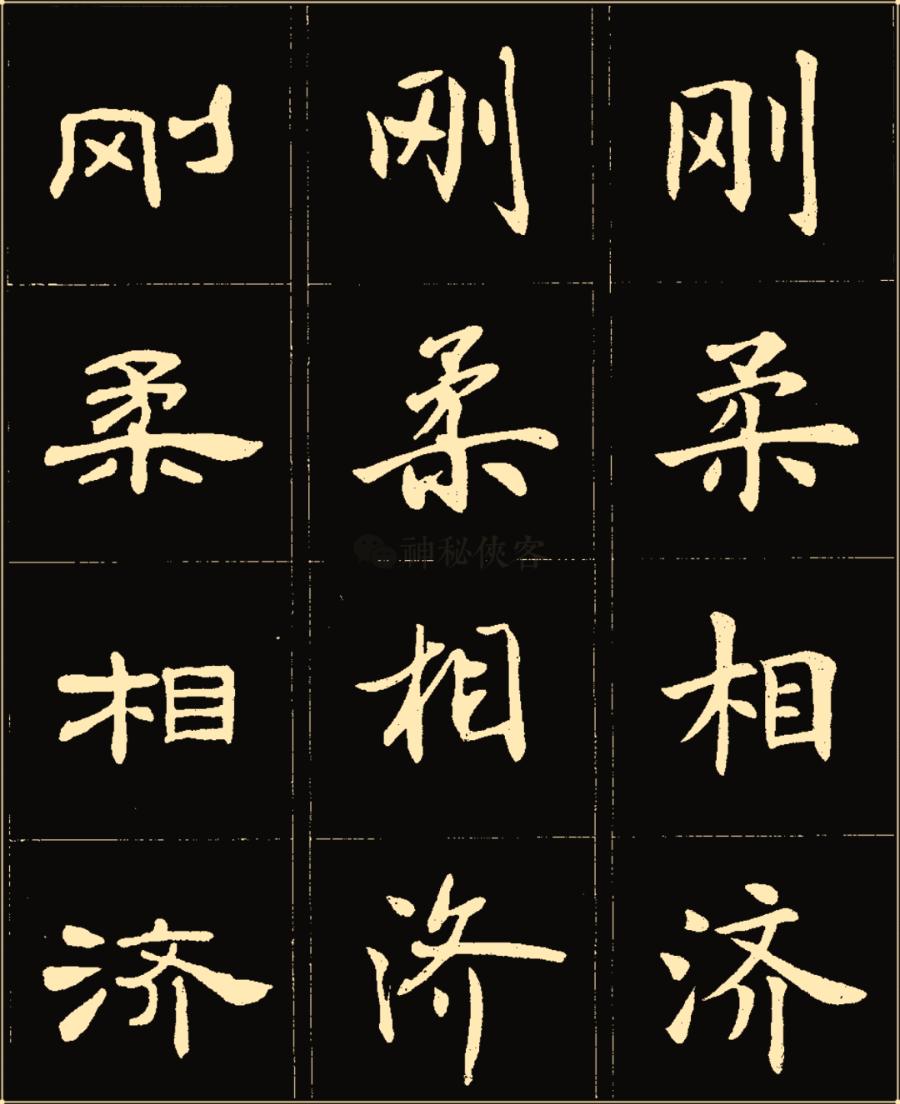 刚 刚 刚
柔 柔 柔
相 相 相
神秘俠客
济 济 济